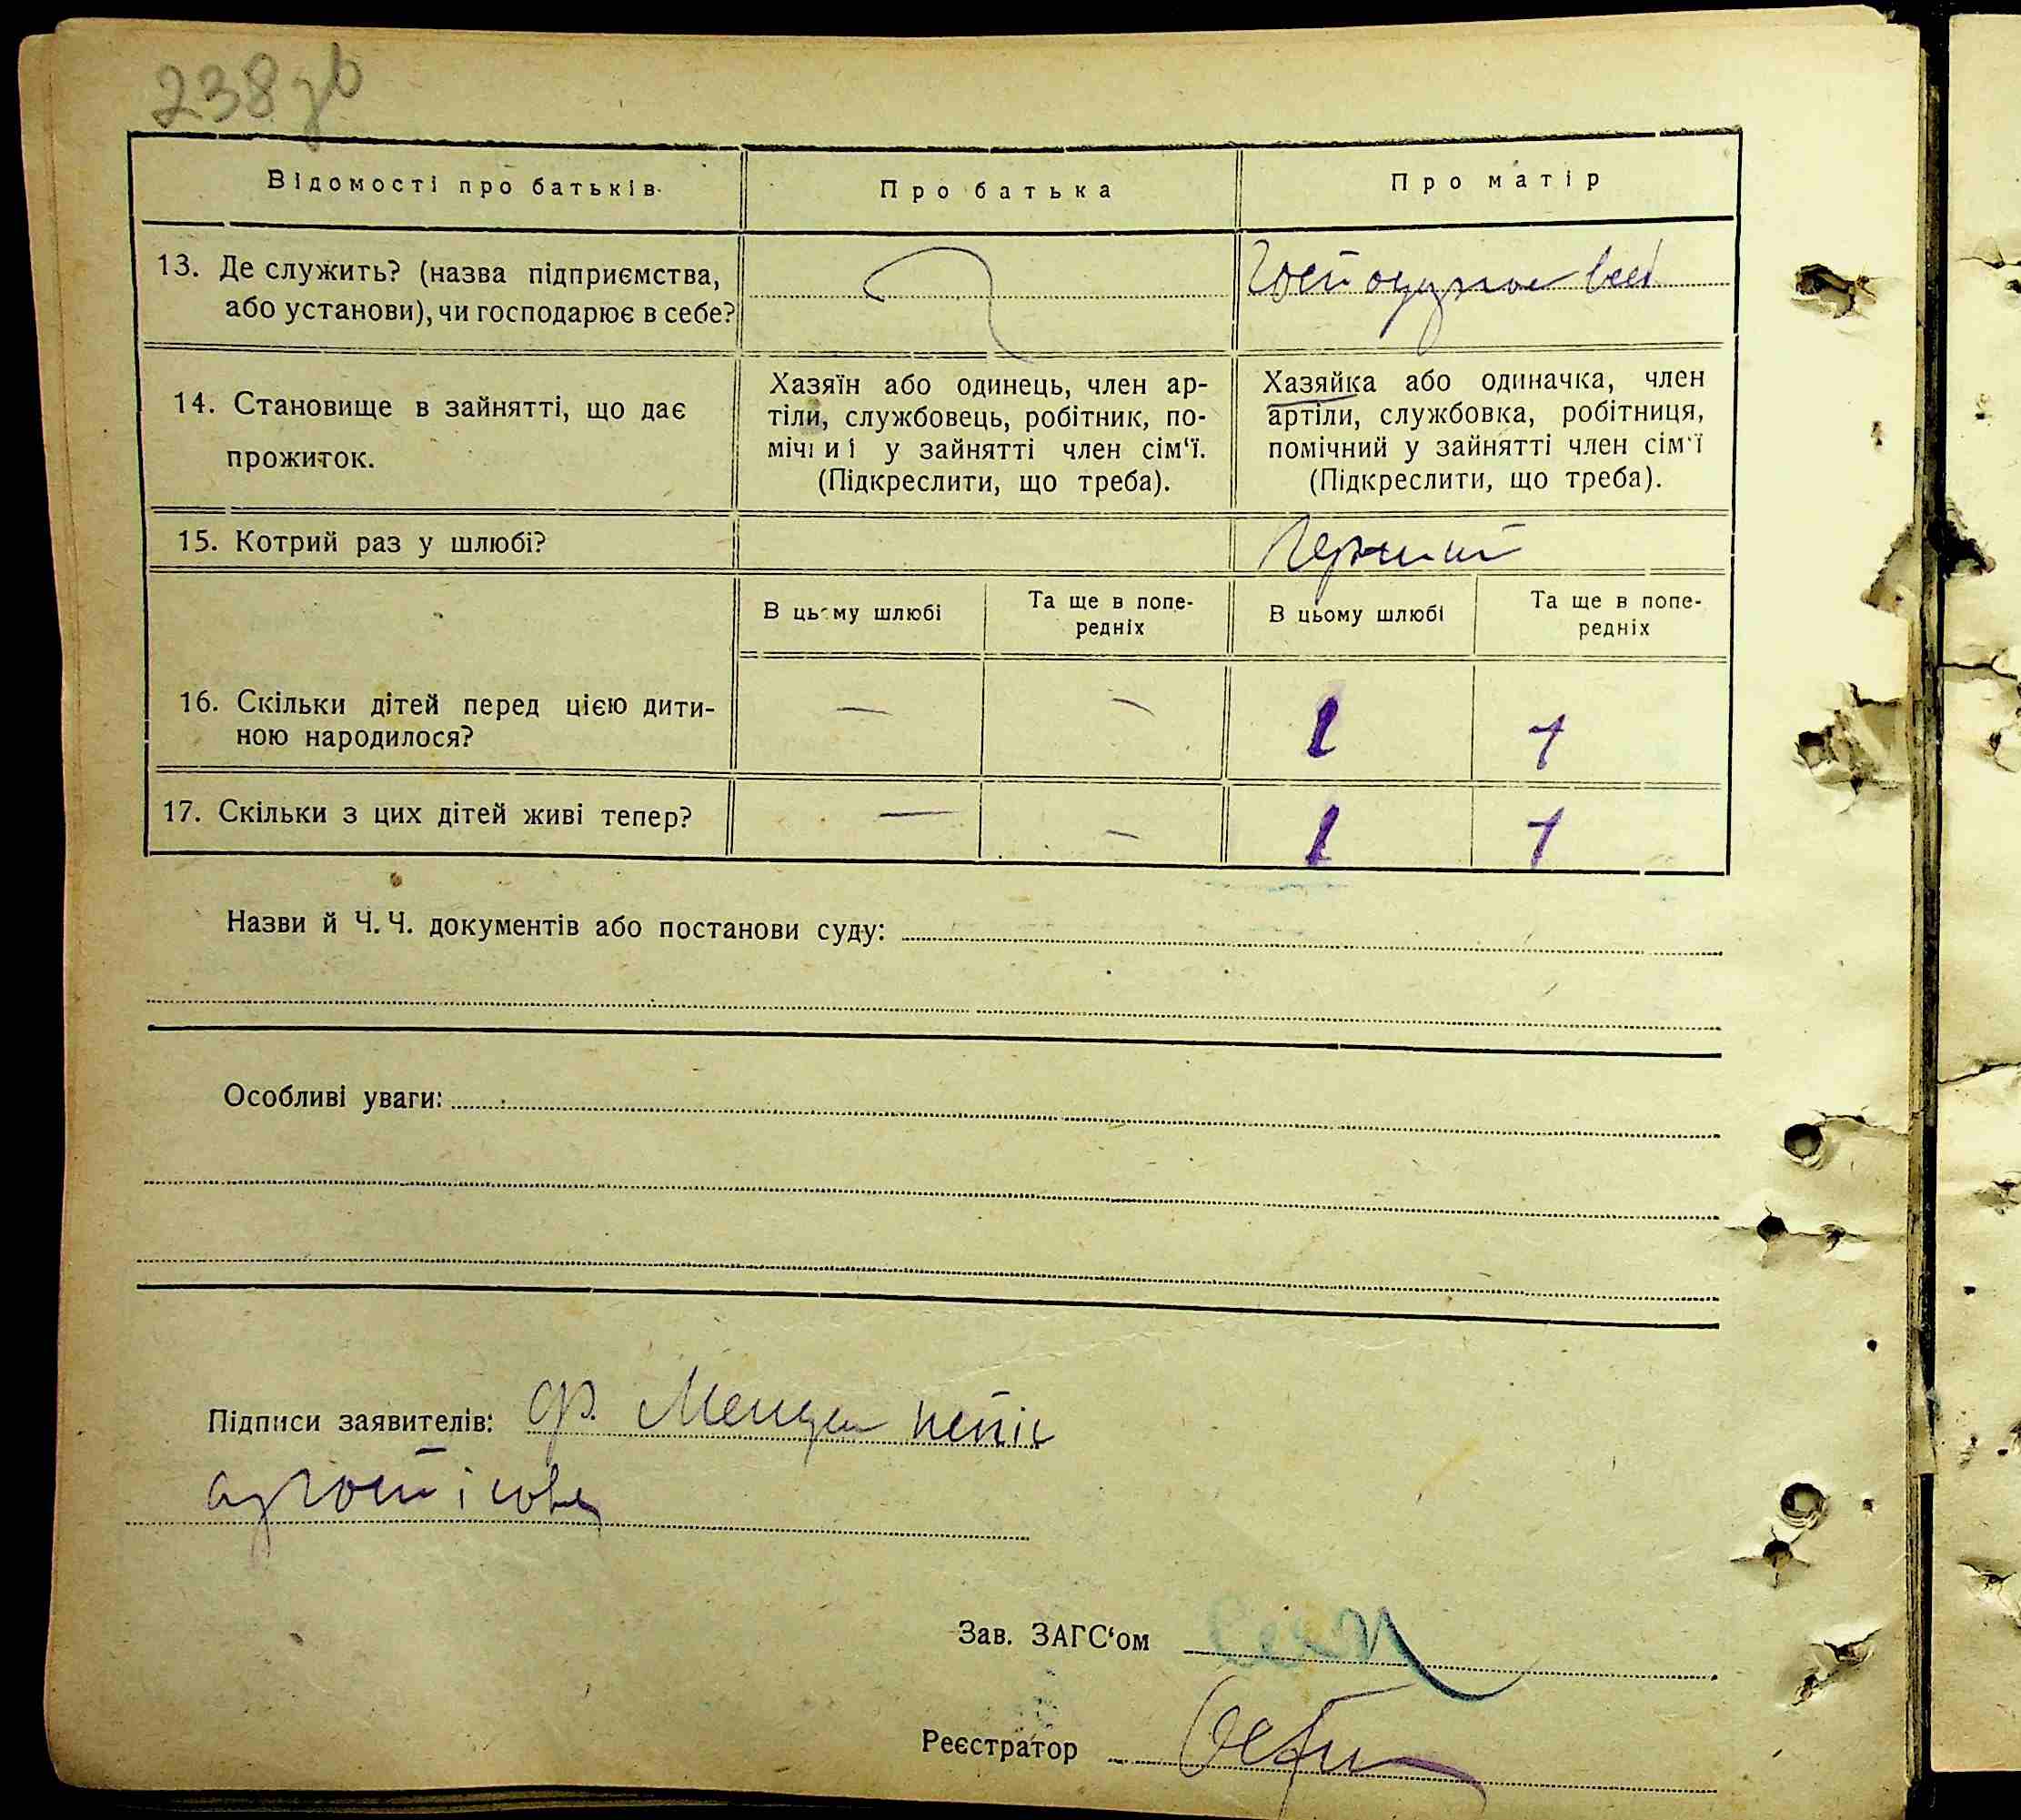 238 зв
Відомості про батьків
Про батька
Про матір
13. Де служить? (назва підприємства,
або установи), чи господарює в себе?
14. Становище в зайнятті, що дає
прожиток.
Хазяїн або одинець, член ар-
тіли, службовець, робітник, по-
мічниі у зайнятті член сім‘ї.
(Підкреслити, що треба).
Хазяйка або одиначка, член
артіли, службовка, робітниця,
помічний у зайнятті член сім‘ї
(Підкреслити, що треба).
15. Котрий раз у шлюбі?
Перший
В цьому шлюбі
Та ще в попе-
редніх
В цьому шлюбі
Та ще в попе-
редніх
16. Скільки дітей перед цією дити-
ною народилося?
— — 1 1
17. Скільки з цих дітей живі тепер?
— — 1 1
Назви й Ч. Ч. документів або постанови суду:
Особливі уваги:
Підписи заявителів:
Зав. ЗАГС‘ом
Реєстратор